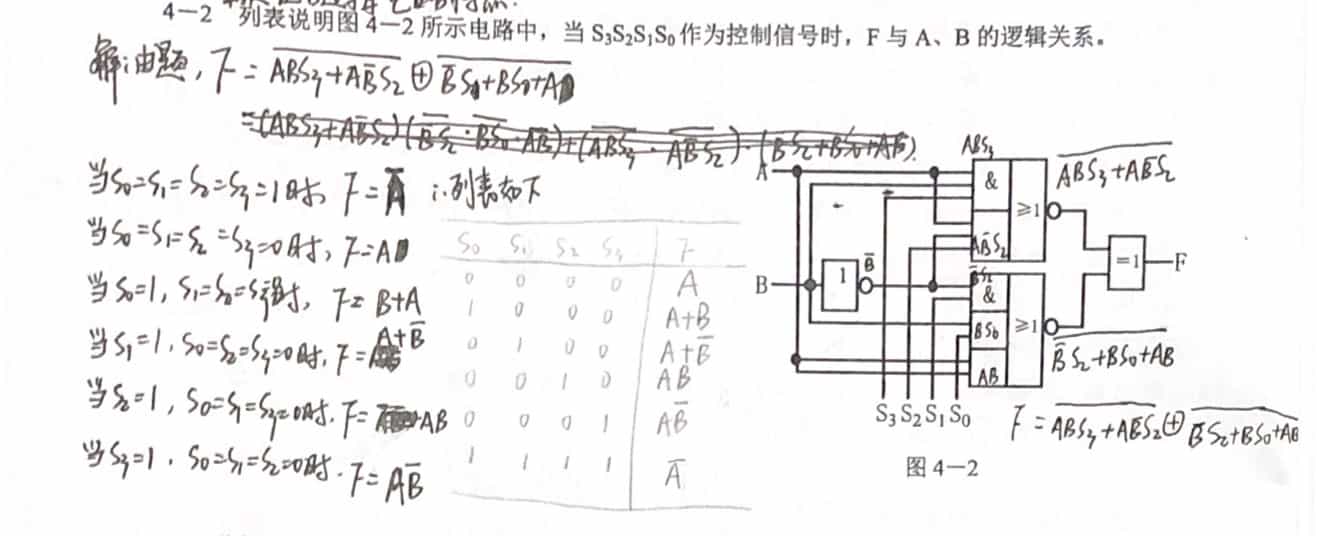 4—2 列表说明图 4—2 所示电路中，当 S₃S₂S₁S₀ 作为控制信号时，F 与 A、B 的逻辑关系。
解：由题，F = \overline{ABS₃+A\overline{B}S₂} ⊕ \overline{\overline{B}S₁+BS₀+A}
当S₀=S₁=S₂=S₃=1时，F=\overline{A} ∴列表如下
当S₀=S₁=S₂=S₃=0时，F=A
当S₀=1，S₁=S₂=S₃时，F=B+A
当S₁=1，S₀=S₂=S₃=0时，F=A+\overline{B}
当S₂=1，S₀=S₁=S₃=0时，F=AB
当S₃=1，S₀=S₁=S₂=0时，F=A\overline{B}
S₀ S₁ S₂ S₃ F
0 0 0 0 A
1 0 0 0 A+B
0 1 0 0 A+\overline{B}
0 0 1 0 AB
0 0 0 1 A\overline{B}
1 1 1 1 \overline{A}
ABS₃
\overline{ABS₃+A\overline{B}S₂}
A
&
≥1
A\overline{B}S₂
=1
F
B
1
\overline{B}
\overline{B}S₂
&
BS₀
≥1
AB
\overline{\overline{B}S₂+BS₀+AB}
S₃ S₂ S₁ S₀
F=\overline{ABS₃+A\overline{B}S₂}⊕\overline{\overline{B}S₂+BS₀+AB}
图 4—2